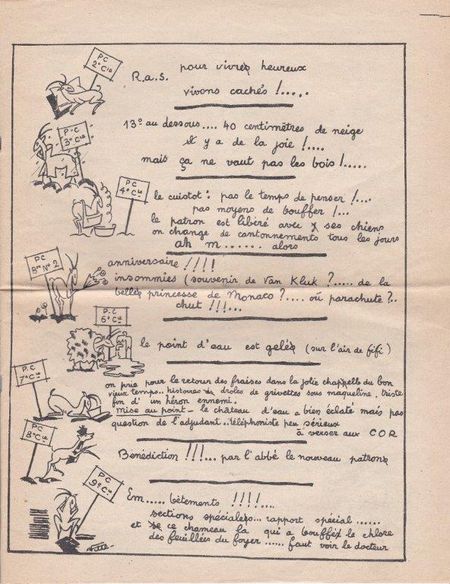 P C
2° Cie
R.a.S. pour vivre heureux
vivons cachés !.....
P-C
3° Cie
13° au dessous.... 40 centimètres de neige
il y a de la joie !....
mais ça ne vaut pas les bois !.....
PC
4° Cie
le cuistot : pas le temps de penser !...
pas moyens de bouffer !...
le patron est libéré avec ses chiens
on change de cantonnements tous les jours
ah m....... alors
PC
Bon N° 2
anniversaire !!!!
insomnies (souvenir de Van Kluk ?..... de la
belle princesse de Monaco ?.... où parachute ?..
chut !!!...
P.C
6° Cie
le point d'eau est gelée (sur l'air de fifi)
PC
7° Cie
on prie pour le retour des fraises dans la jolie chappelle du bon
vieux temps.. histoires de drôles de grisettes sous maqueline, triste
fin d'un héron ennemi.
mise au point - le château d'eau a bien éclaté mais pas
question de l'adjudant.. téléphoniste peu sérieux
à verser aux COR
PC
8° Cie
Bénédiction !!!... par l'abbé le nouveau patron
PC
9° Cie
Em..... bêtements !!!!....
sections spéciales... rapport spécial ......
et ce chameau qui a bouffé le chlore
des feuillées du foyer ...... faut voir le docteur